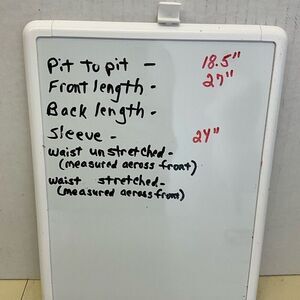 Pit to pit - 18.5"
Front length - 27"
Back length -
Sleeve - 24"
waist unstretched -
(measured across front)
waist stretched -
(measured across front)